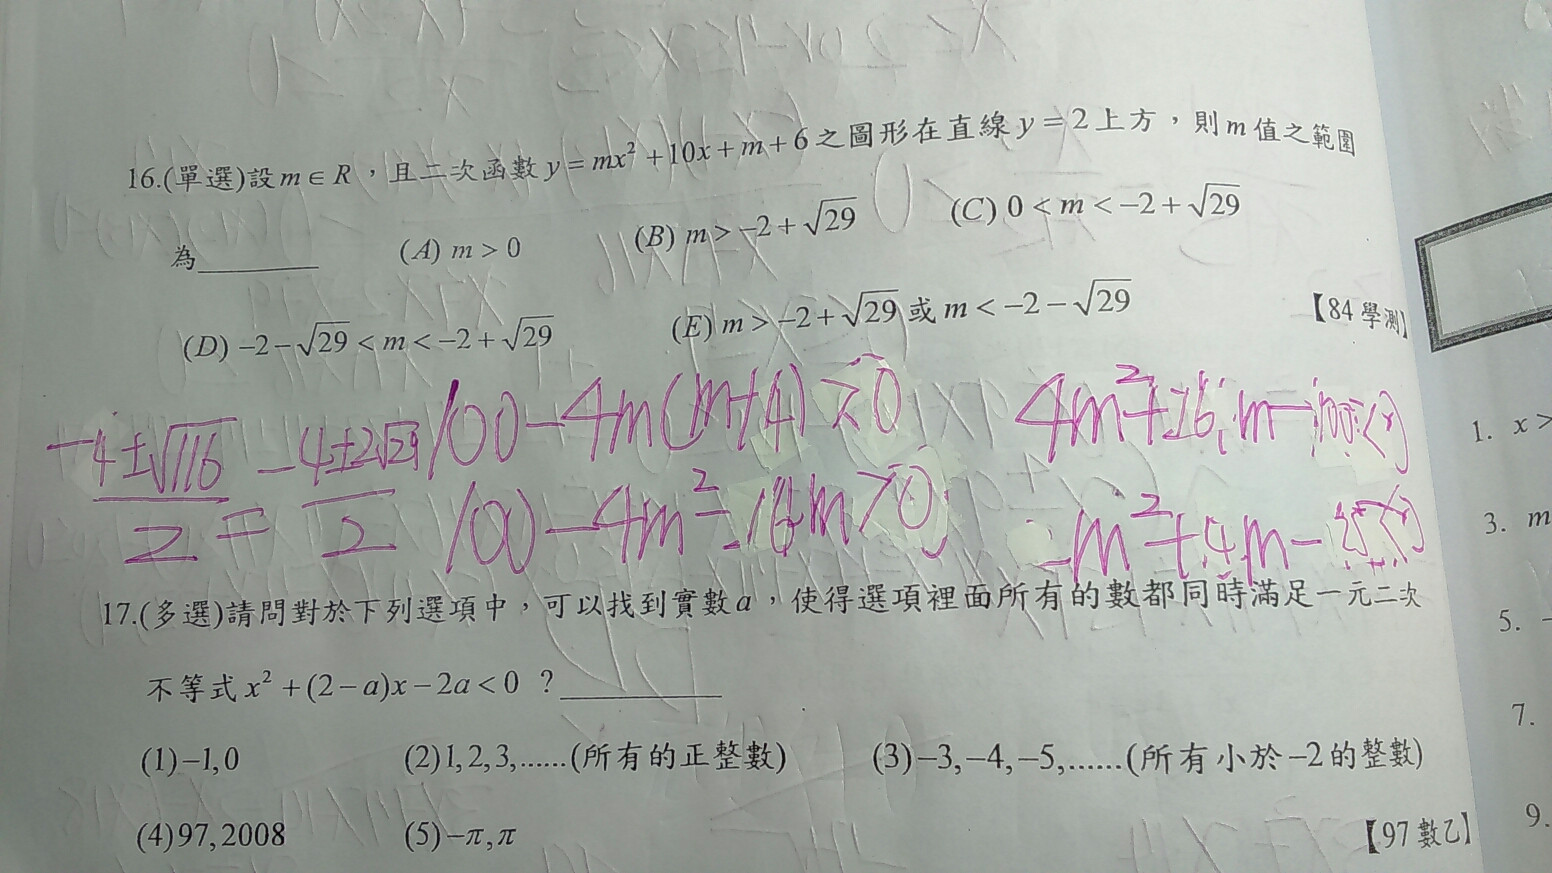 16.(單選)設 m ∈ R ，且二次函數 y = mx² + 10x + m + 6 之圖形在直線 y = 2 上方，則 m 值之範圍
為________ (A) m > 0 (B) m > −2 + √29 (C) 0 < m < −2 + √29
(D) −2 − √29 < m < −2 + √29 (E) m > −2 + √29 或 m < −2 − √29 【84 學測】
100 − 4m(m+4) > 0
−4 ± √116 / 2 = −4 ± 2√29 / 2
100 − 4m² − 16m > 0
17.(多選)請問對於下列選項中，可以找到實數 a ，使得選項裡面所有的數都同時滿足一元二次
不等式 x² + (2 − a)x − 2a < 0 ？________
(1) −1, 0 (2) 1, 2, 3, ......(所有的正整數) (3) −3, −4, −5, ......(所有小於 −2 的整數)
(4) 97, 2008 (5) −π, π 【97 數乙】
1. x >
3. m
5. −
7.
9.